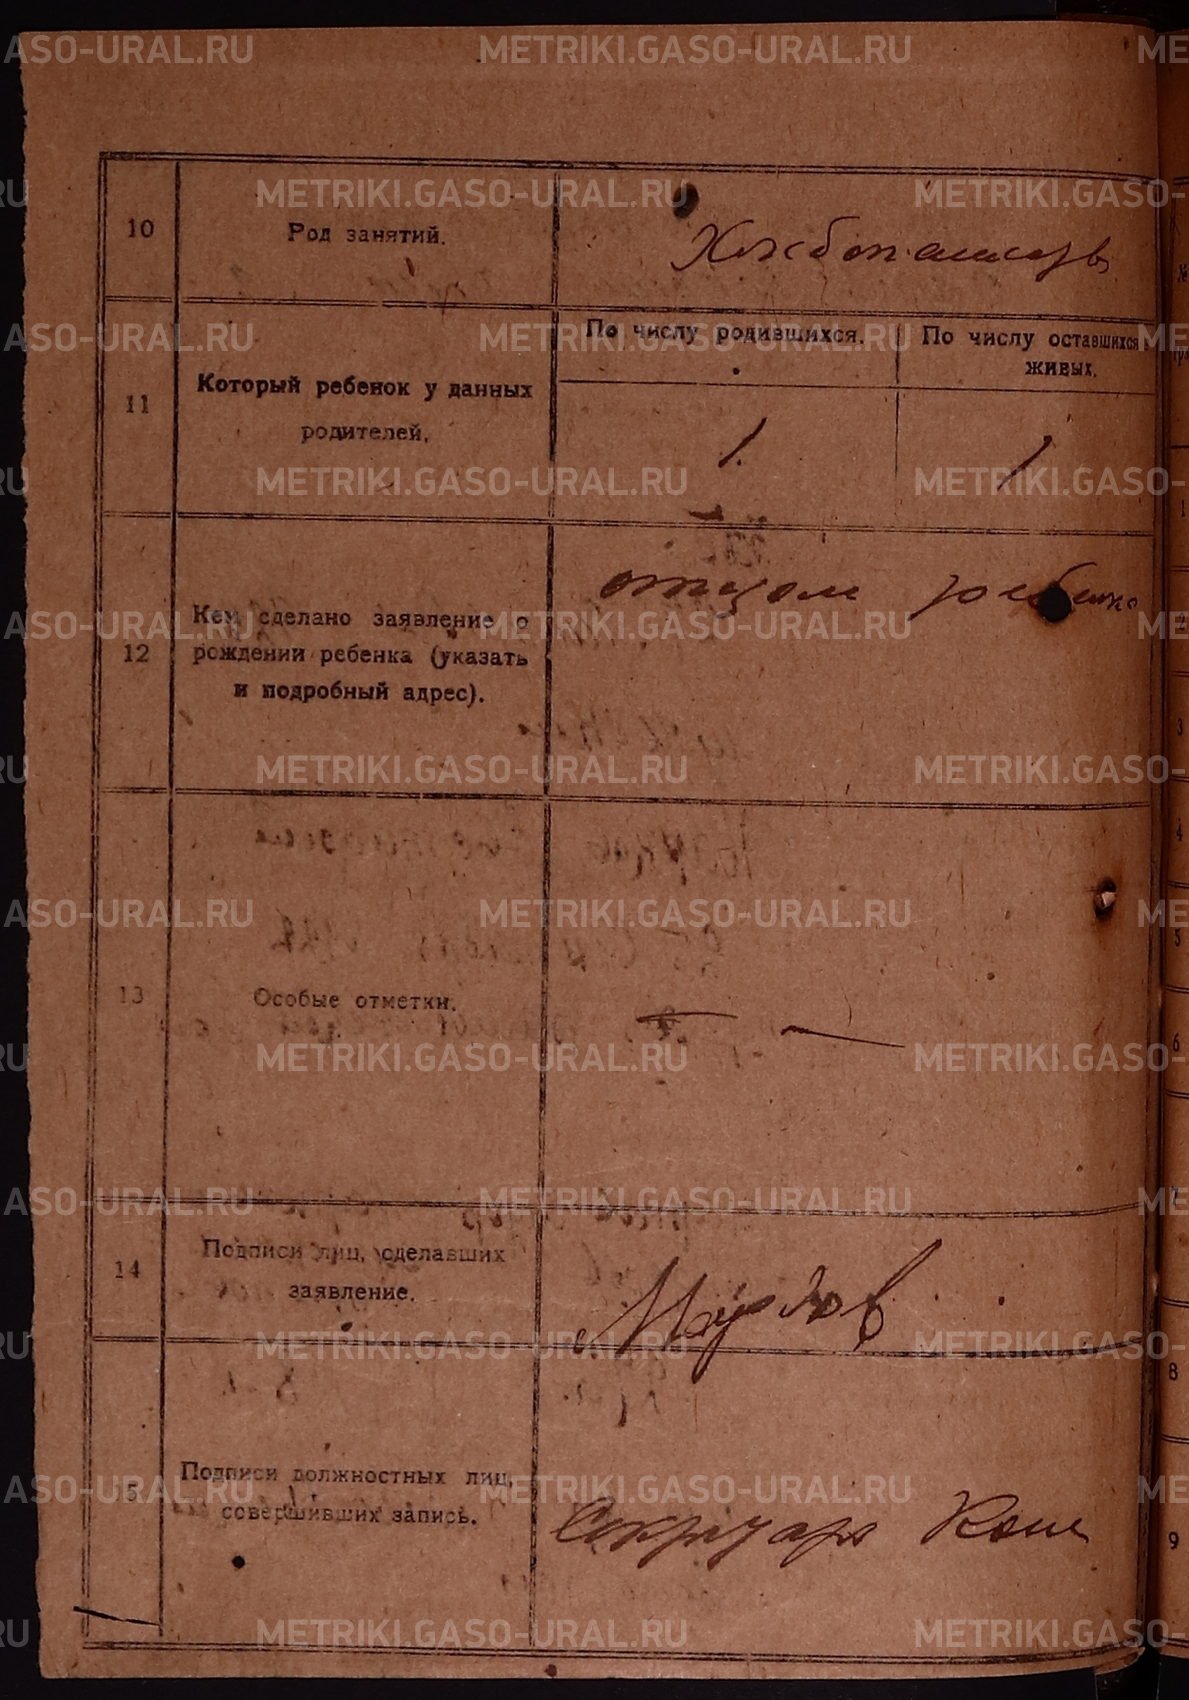 10
Род занятий.
Хлебопашец
11
Который ребенок у данных
родителей.
По числу родившихся.
По числу оставшихся
живых.
1.
1
12
Кем сделано заявление о
рождении ребенка (указать
и подробный адрес).
отцом ребенка
13
Особые отметки.
—
14
Подписи лиц, сделавших
заявление.
15
Подписи должностных лиц,
совершивших запись.
Секретарь
METRIKI.GASO-URAL.RU